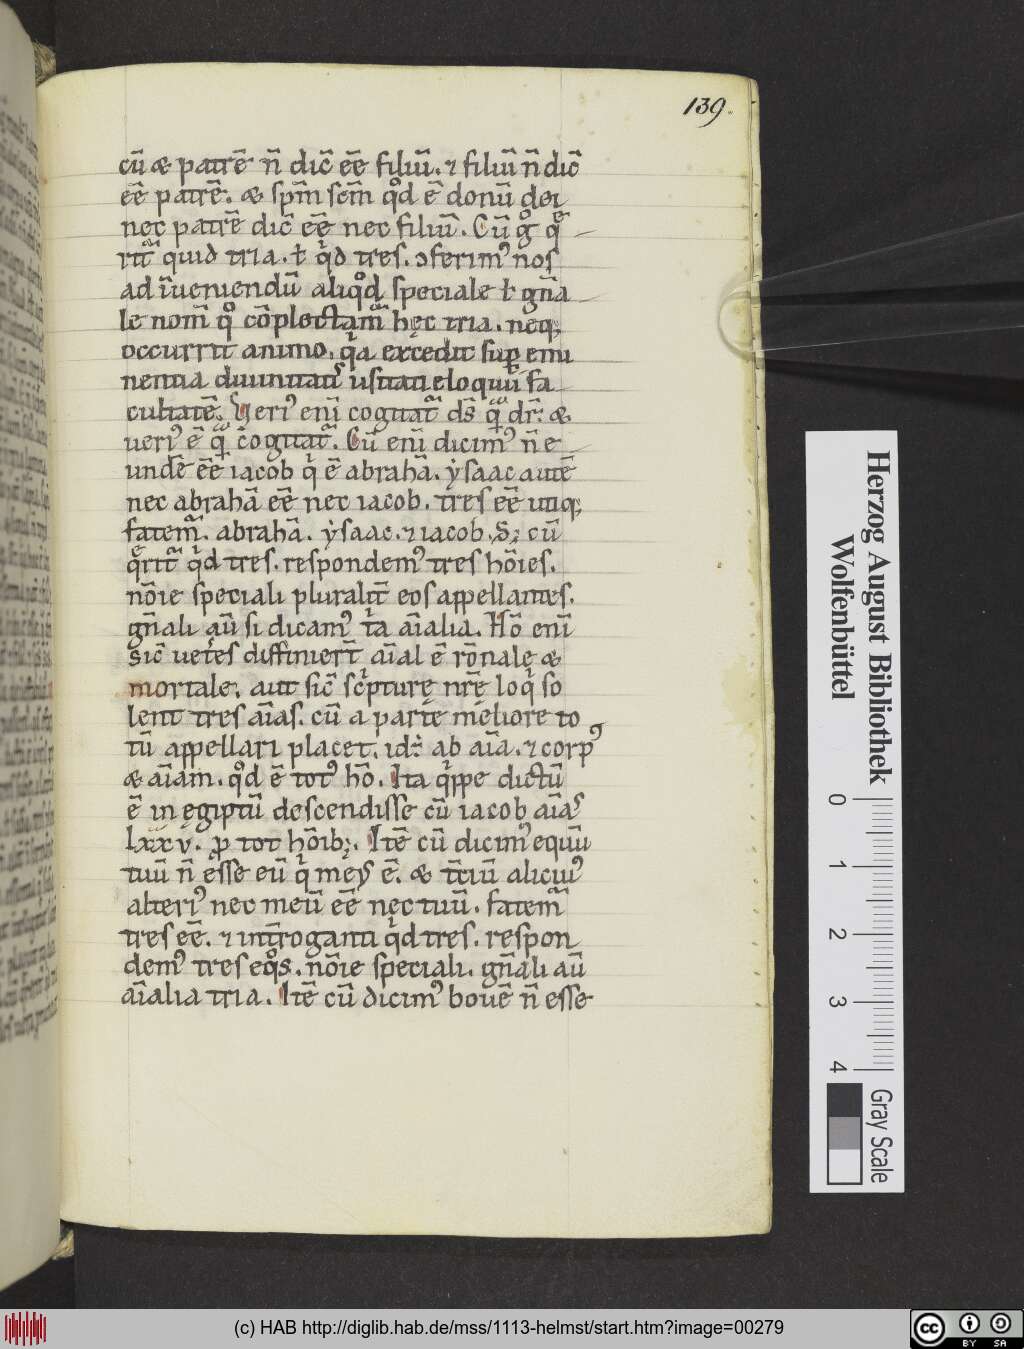 139.
cū & patrē n̄ dic̄ eē filiū. ⁊ filiū n̄ dic̄
eē patrē. & spm̄ scm̄ qd̊ ē donū dei
nec patrē dic̄ eē nec filiū. Cū gͦ qͤ
rit᷑ quid tria. ł qͥd tres. ɔferim᷒ nos
ad īueniendū aliqͦd speciale ł gn̄a
le nom̄ qͦ cōplectam᷑ hęc tria. neq;
occurrit animo. qͥa excedit suꝑ emi
nentia diuinitati᷒ usitati eloquii fa
cultatē. Ueri᷒ enī cogitat᷑ ds̄ qͣ dr̄. &
ueri᷒ ē qͣ cogitat᷑. Cū enī dicim᷒ n̄ e
undē eē iacob qͥ ē abrahā. ẏsaac autē
nec abrahā eē nec iacob. tres eē utiq;
fatem᷑. abrahā. ẏsaac. ⁊ iacob. S; cū
qͤrit᷑ qͥd tres. respondem᷒ tres hōies.
nōie speciali pluralit̄ eos appellantes.
gn̄ali aū si dicam᷒ tͥa aīalia. Hō enī
sic̄ uetes diffiniert̄ aīal ē rōnale &
mortale. aut sic̄ scͥpturę nrē loqͥ so
lent tres aīas. cū a parte meliore to
tū appellari placet. id: ab aīa. ⁊ corp᷒
& aīam. qͦd ē tot᷒ hō. Ita qͥppe dictū
ē in ęgiptū descendisse cū iacob aīas
lxxv. ꝓ tot hōib;. Itē cū dicim᷒ equū
tuū n̄ esse eū qͥ me᷒ ē. & t̄ciū alicui᷒
alteri᷒ nec meū eē nec tuū. fatem᷑
tres eē. ⁊ int̄roganti qͥd tres. respon
dem᷒ tres eqͦs. nōie speciali. gn̄ali aū
aīalia tria. Itē cū dicim᷒ bouē n̄ esse
Herzog August Bibliothek
Wolfenbüttel
0 1 2 3 4 Gray Scale
(c) HAB http://diglib.hab.de/mss/1113-helmst/start.htm?image=00279
cc BY SA